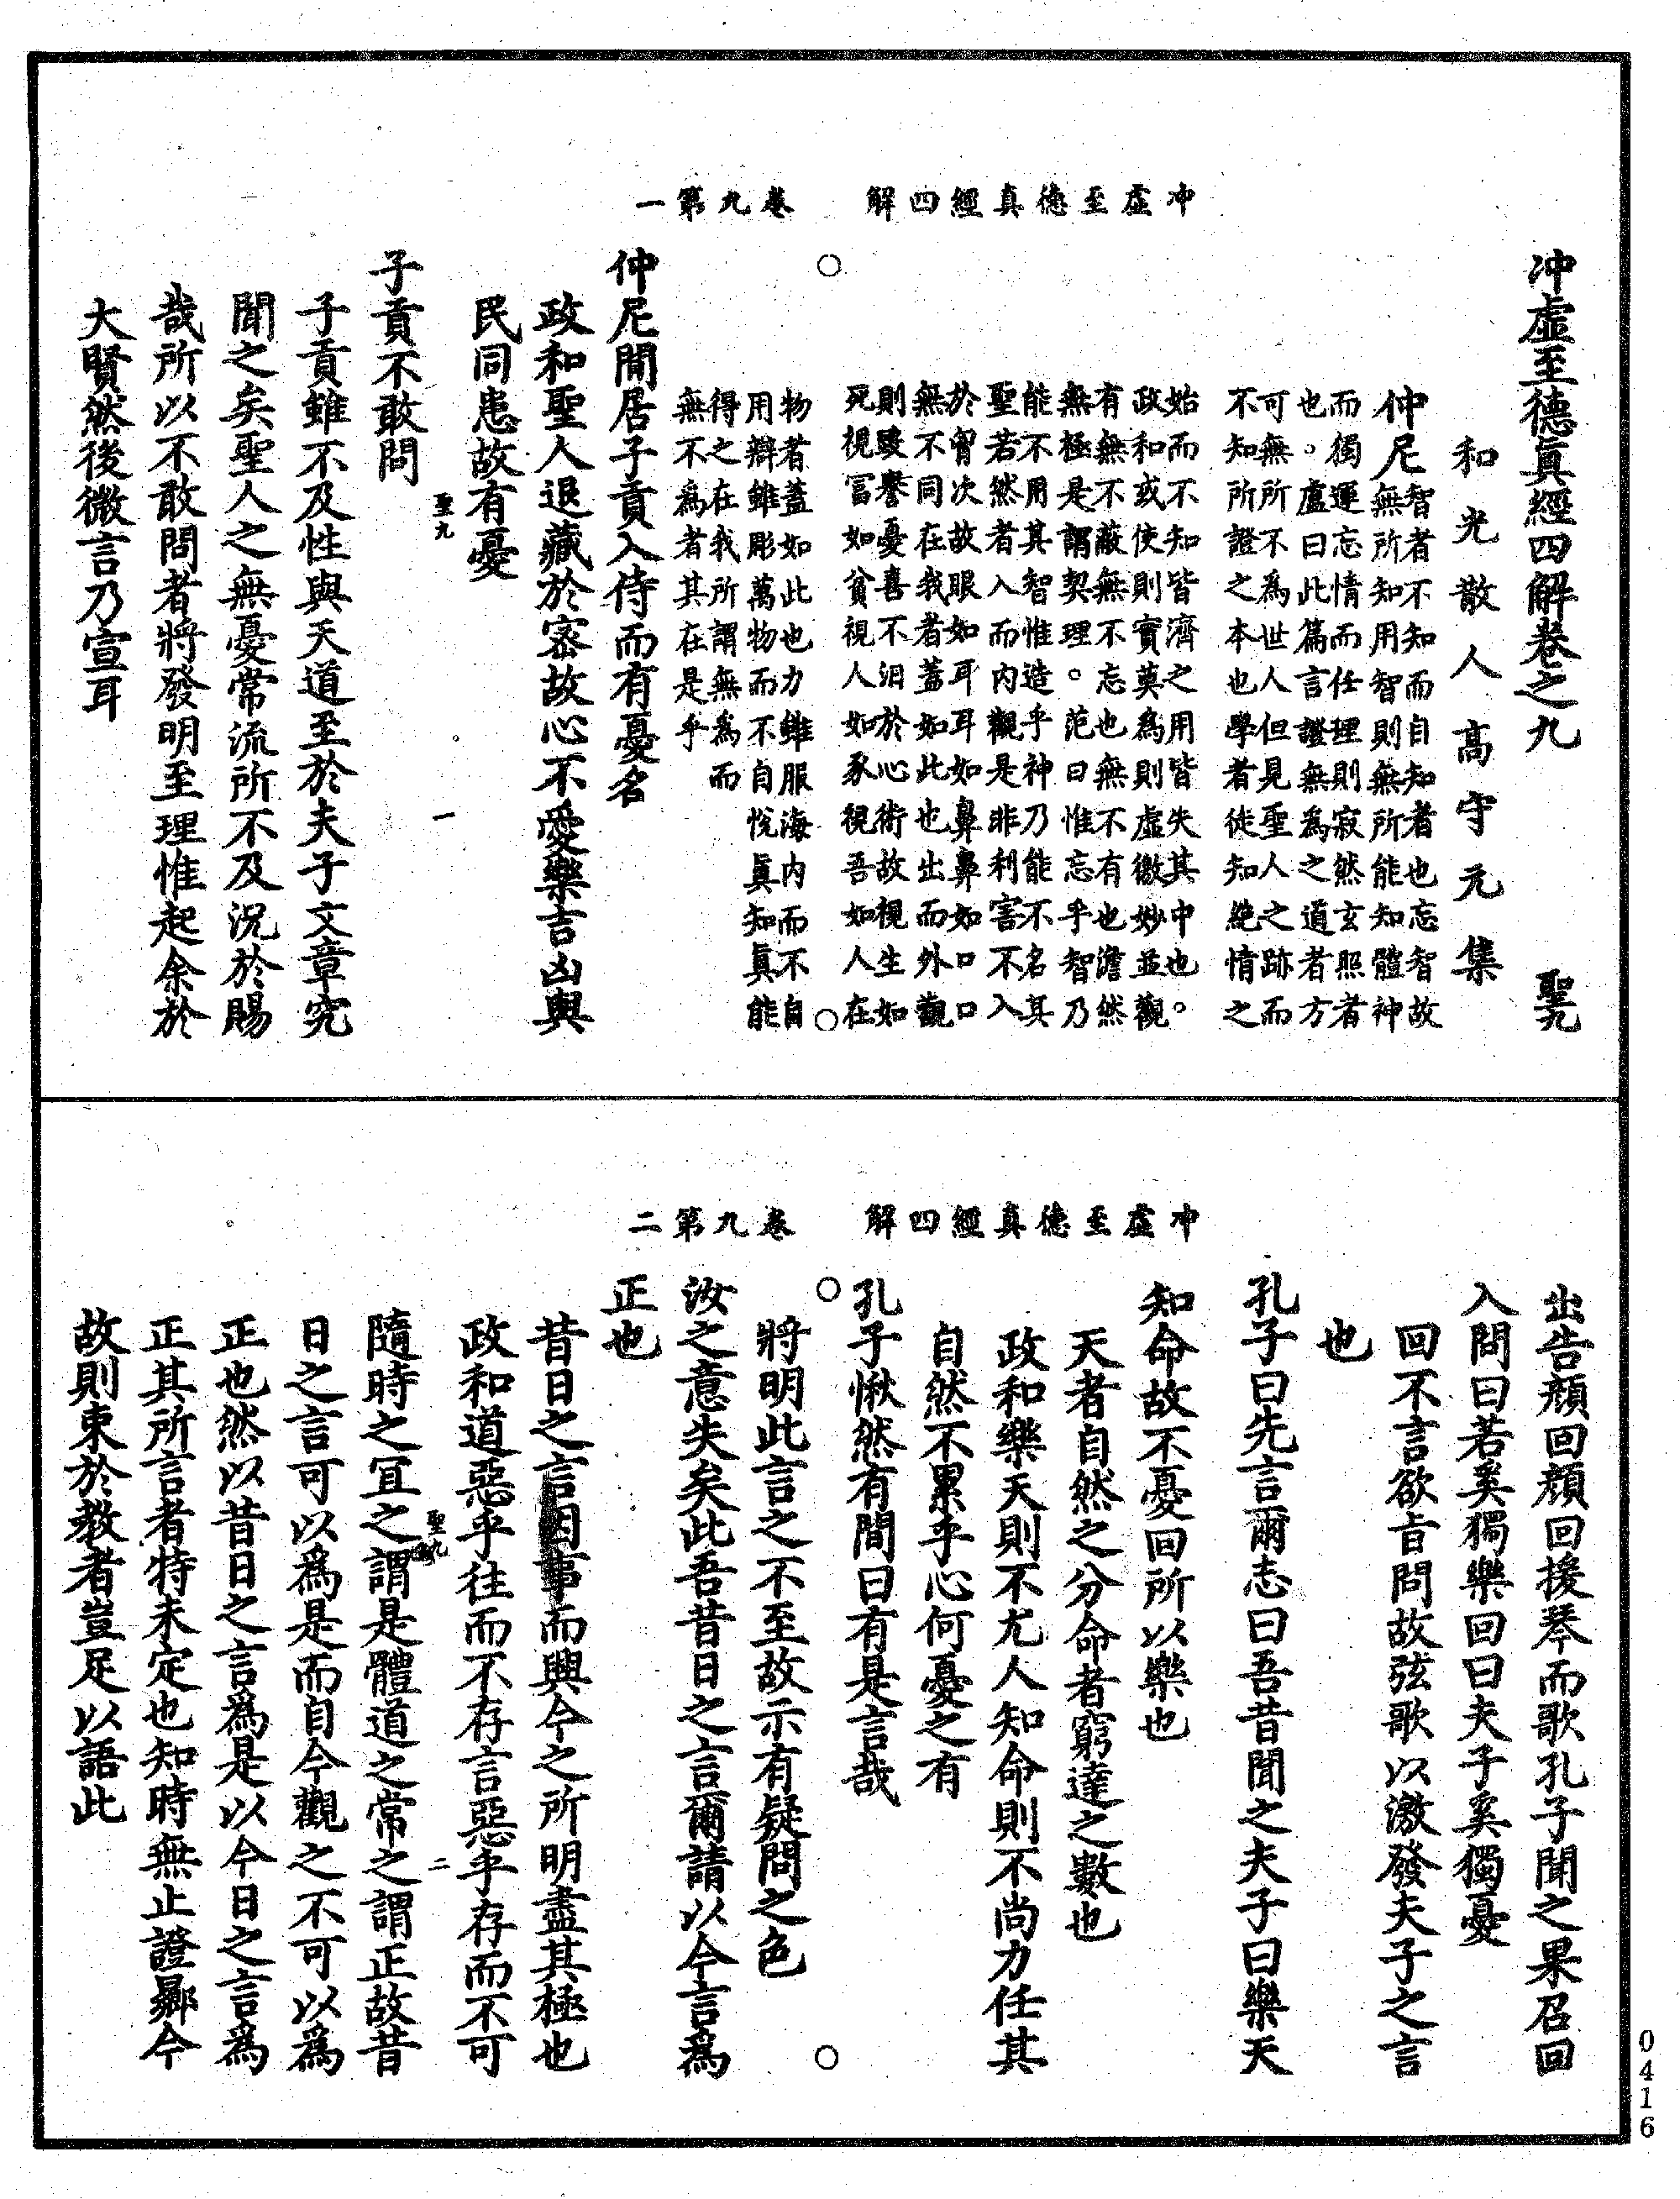 冲虛至德真經四解　卷九第一
冲虛至德眞經四解卷之九　聖九
和光散人高守元集
仲尼
智者不知而自知者也忘智故
無所知用智則無所能知體神
而獨運忘情而任理則寂然玄照者
也。盧曰此篇言證無爲之道者方
可無所不爲世人但見聖人之跡而
不知所證之本也學者徒知絕情之
始而不知皆濟之用皆失其中也。
政和或使則實莫爲則虛徼妙並觀
有無不蔽無不忘也無不有也澹然
無極是謂契理。范曰惟忘乎智乃
能不用其智惟造乎神乃能不名其
聖若然者入而内觀是非利害不入
於胷次故眼如耳耳如鼻鼻如口口
無不同在我者蓋如此也出而外觀
則毀譽憂喜不汩於心術故視生如
死視富如貧視人如豕視吾如人在
物者蓋如此也力雖服海内而不自
用辯雖彫萬物而不自悅眞知眞能
得之在我所謂無爲而
無不爲者其在是乎
仲尼閒居子貢入侍而有憂名
政和聖人退藏於密故心不憂樂吉凶與
民同患故有憂
聖九　一
子貢不敢問
子貢雖不及性與天道至於夫子文章究
聞之矣聖人之無憂常流所不及況於賜
哉所以不敢問者將發明至理惟起余於
大賢然後微言乃宣耳
冲虛至德真經四解　卷九第二
出告顏回顏回援琴而歌孔子聞之果召回
入問曰若奚獨樂回曰夫子奚獨憂
回不言欲旨問故弦歌以激發夫子之言
也
孔子曰先言爾志曰吾昔聞之夫子曰樂天
知命故不憂回所以樂也
天者自然之分命者窮達之數也
政和樂天則不尤人知命則不尚力任其
自然不累乎心何憂之有
孔子愀然有間曰有是言哉
將明此言之不至故示有疑問之色
汝之意失矣此吾昔日之言爾請以今言爲
正也
昔日之言因事而興今之所明盡其極也
政和道惡乎往而不存言惡乎存而不可
隨時之宜之謂是體道之常之謂正故昔
聖九　二
日之言可以爲是而自今觀之不可以爲
正也然以昔日之言爲是以今日之言爲
正其所言者特未定也知時無止證曏今
故則束於教者豈足以語此
0416